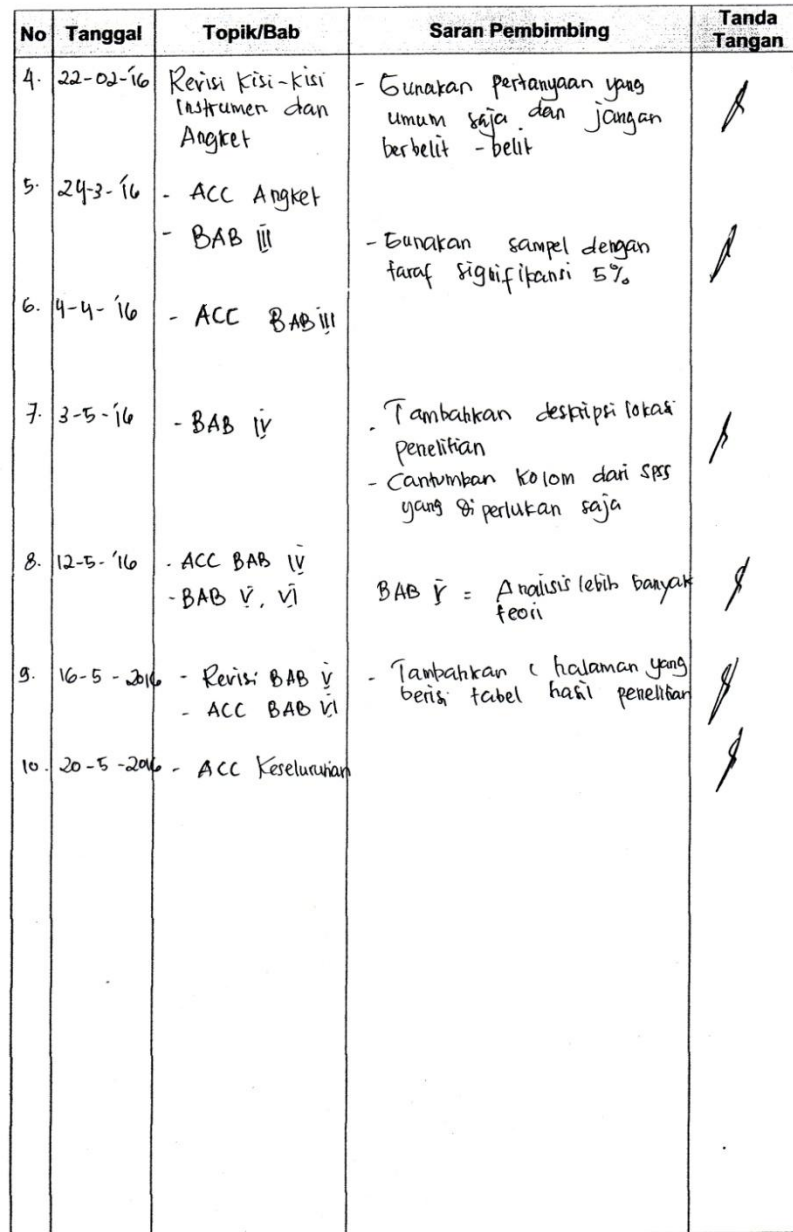 No Tanggal Topik/Bab Saran Pembimbing Tanda Tangan
4. 22-02-'16 Revisi Kisi-kisi - Gunakan pertanyaan yang
Instrumen dan umum saja dan jangan
Angket berbelit-belit
5. 24-3-'16 - ACC Angket
- BAB III - Gunakan sampel dengan
taraf signifikansi 5%
6. 4-4-'16 - ACC BAB III
7. 3-5-'16 - BAB IV - Tambahkan deskripsi lokasi
penelitian
- Cantumkan kolom dari spss
yang diperlukan saja
8. 12-5-'16 - ACC BAB IV
- BAB V, VI BAB V = Analisis lebih banyak
teori
9. 16-5-2016 - Revisi BAB V - Tambahkan halaman yang
- ACC BAB VI berisi tabel hasil penelitian
10. 20-5-2016 - ACC Keseluruhan